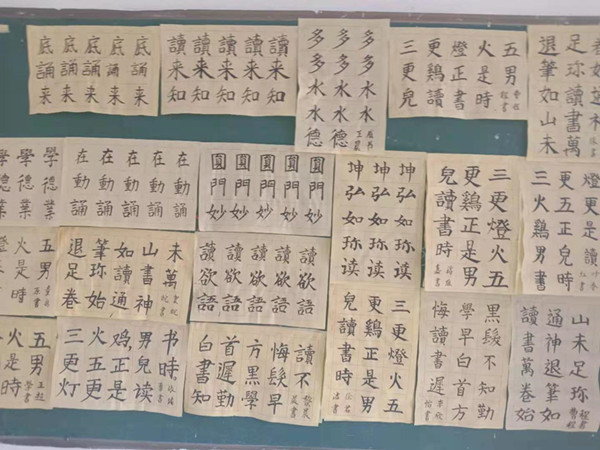 底誦来
底誦来
底誦来
底誦来
底誦来
讀来知
讀来知
讀来知
讀来知
讀来知
多多水水
多多水水德
多多水水德
五男
火是時
燈正書
更鷄讀
三更兒
足珍讀書萬
退筆如山未
學德業
學德業
學德業
在動誦
在動誦
在動誦
在動誦
在動誦
圓門妙
圓門妙
圓門妙
圓門妙
圓門妙
坤弘如珍读
坤弘如珍读
坤弘如珍读
三更燈火五
更鷄正是男
兒讀書時
更五正兒時
三火鷄男
五男
火是時
未萬
山書神
如讀通
筆珍始
退足卷
讀欲語
讀欲語
讀欲語
讀欲語
讀欲語
三更燈火五
更鷄正是男
兒讀書時
黑髮不知勤
學早白首方
悔讀書遲
山未足珍
通神退筆如
讀書萬卷始
五男
火是時
书時
男兒读
鸡正是
火五更
三更灯
讀不
悔髮早
方黑學
首遲勤
白書知